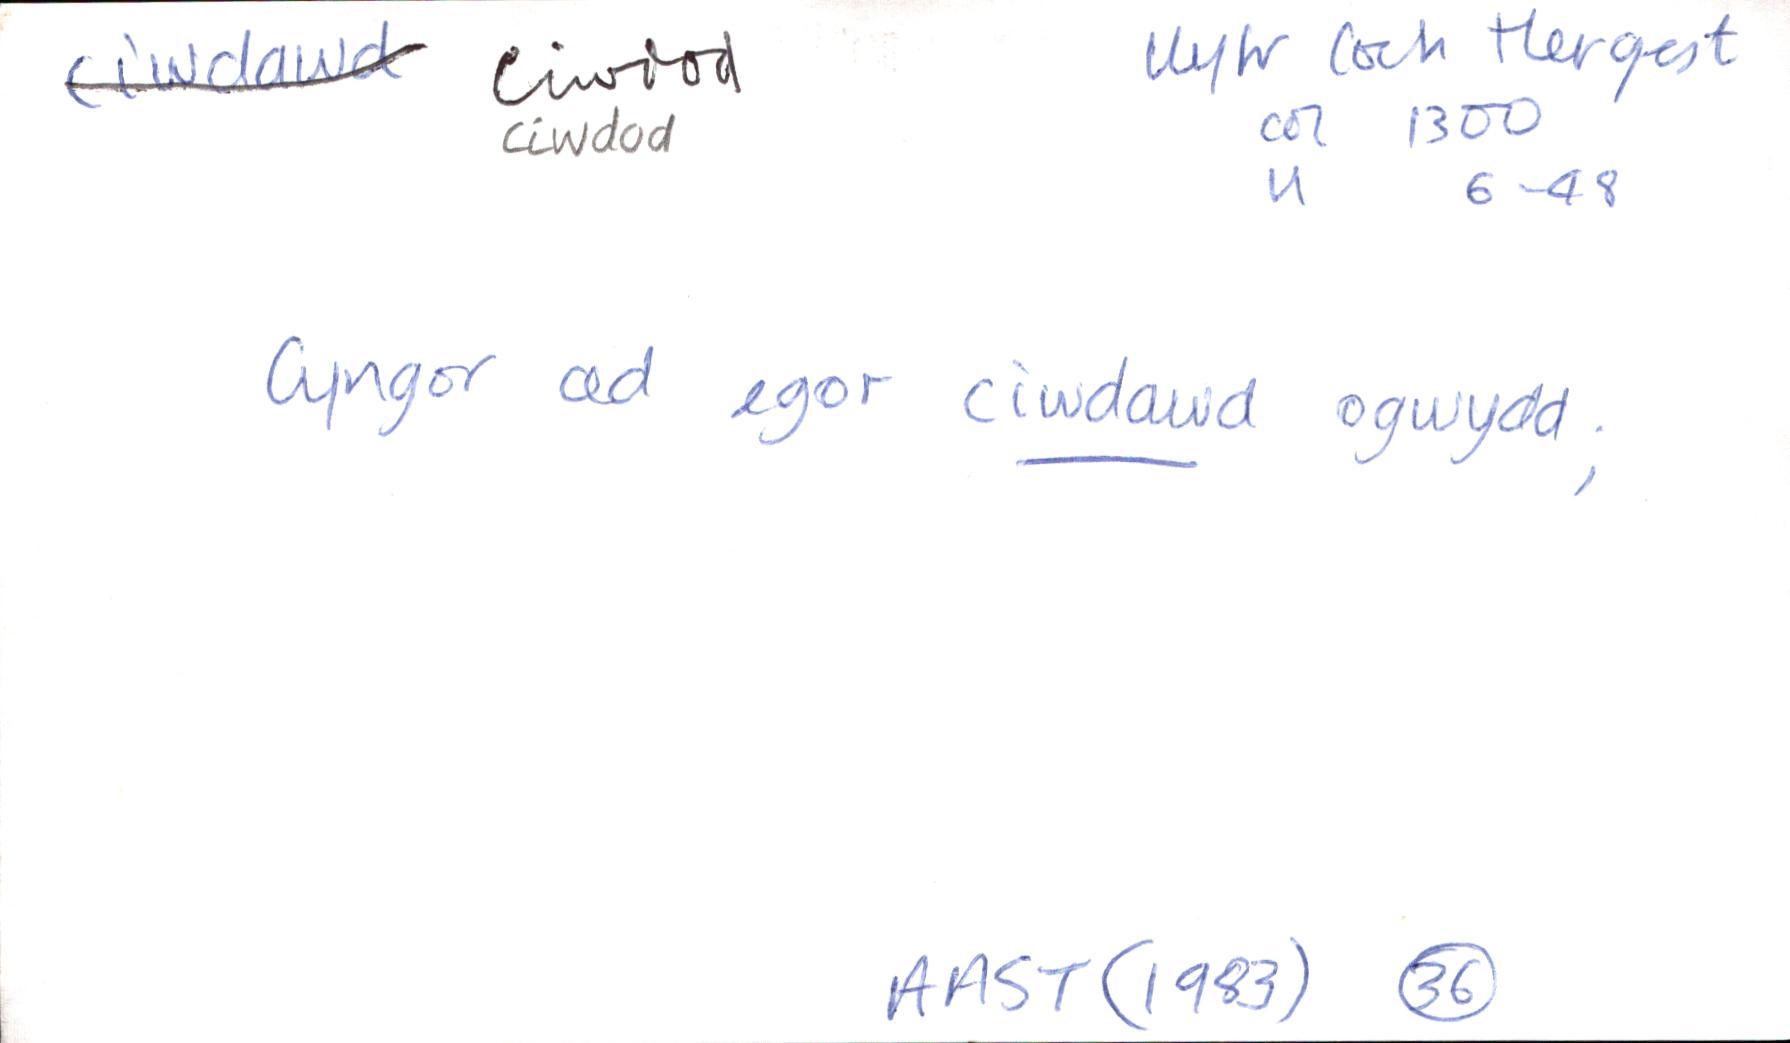 ciwdawd ciwdod Llyfr Coch Hergest
ciwdod col 1300
ll 6-48
Cyngor ced egor ciwdawd ogwydd;
AAST (1983) 36